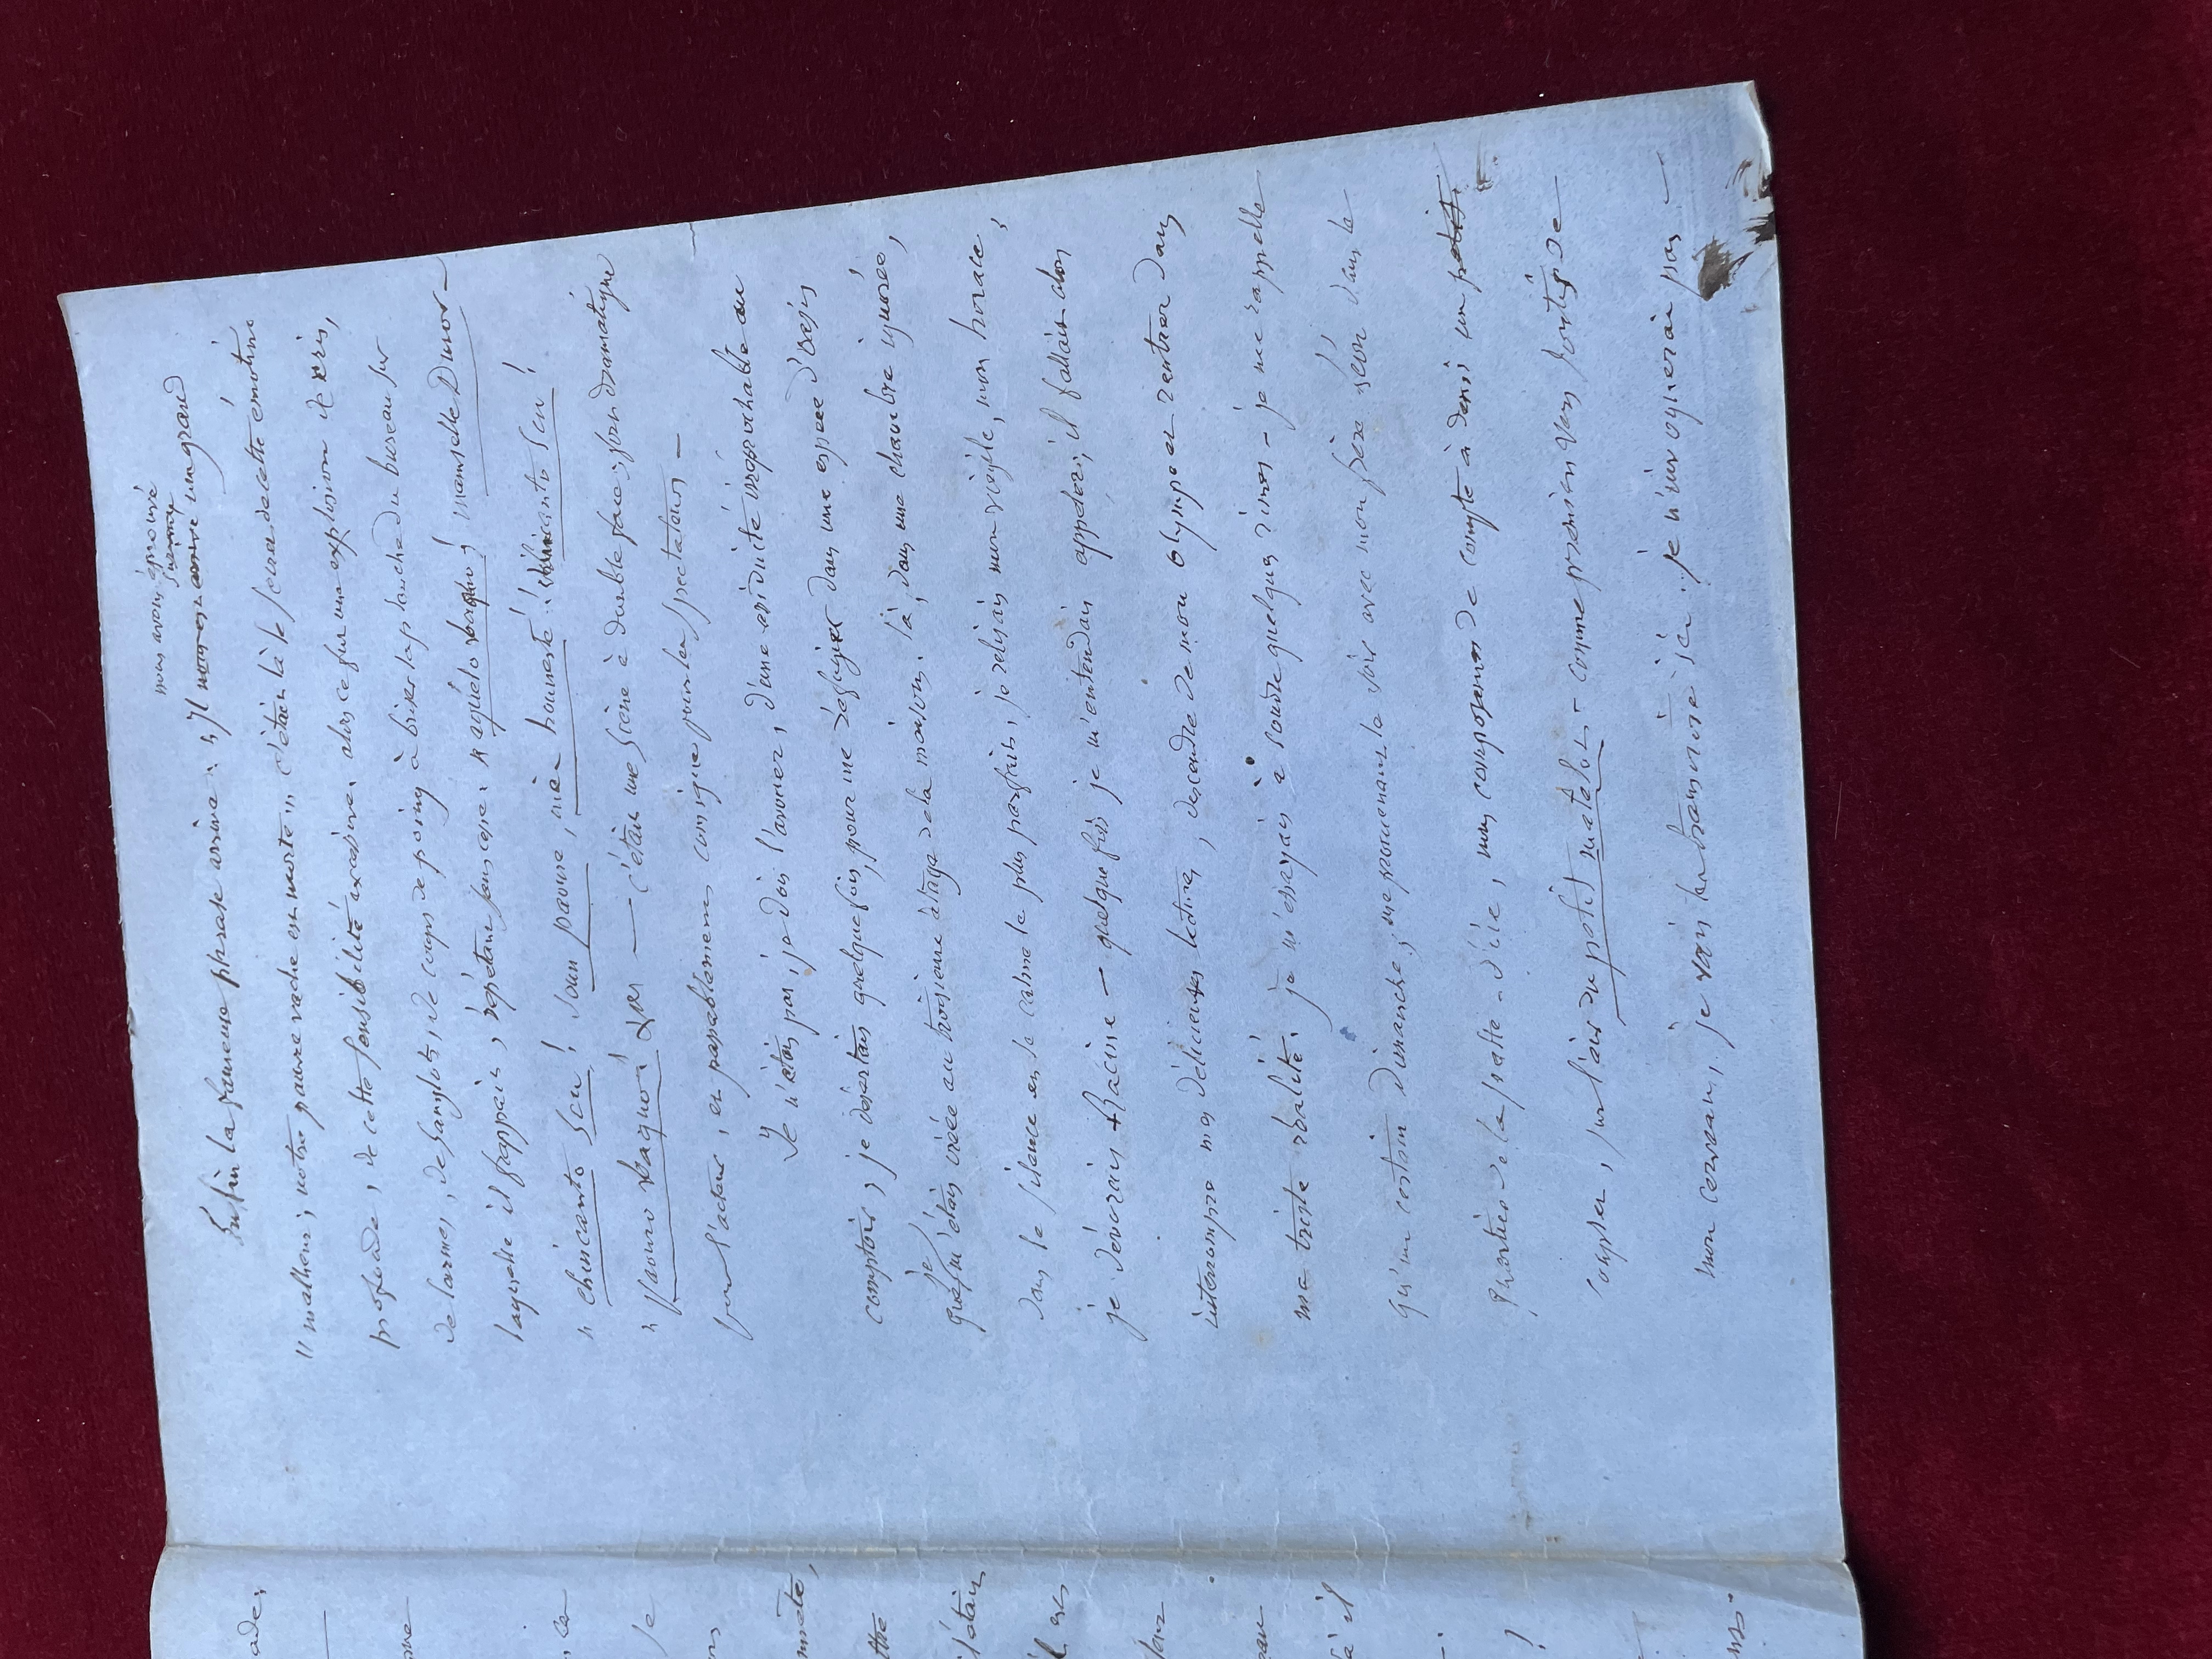 nous avons éprouvé
Enfin la fameuse phrase arriva : " Il nous est arrivé un grand
" malheur, notre pauvre vache est morte ", c'était là le sceau de cette émotion
profonde, de cette sensibilité excessive. alors ce fut une explosion de cris,
de larmes, de sanglots, de coups de poing à briser la planche du bureau sur
laquelle il frappait, répétant sans cesse : " aquélo vaquo ! mamselle Duvor
" chincanto scu ! soun paoure, siè hounesté ! chincanto scu !
" paouro vaquo ! — c'était une scène à double face, fort dramatique
pour l'acteur, et passablement comique pour les spectateurs —
Je n'étais pas, je dois l'avouer, d'une assiduité irréprochable au
comptoir, je désertais quelquefois, pour me réfugier dans une espèce d'oasis
que je m'étais créée au troisième étage de la maison. là, dans une chambre ignorée,
dans le silence et le calme le plus parfait, je relisais mon virgile, mon horace,
je dévorais Racine — quelque fois je m'entendais appeler; il fallait alors
interrompre mes délicieuses lectures, descendre de mon olympe et rentrer dans
ma triste réalité. je m'essayais à coudre quelques rimes — je me rappelle
qu'un certain Dimanche, me promenant le soir avec mon frère selon dans le
quartier de la presqu'île, nous composames de compte à demi un petit
couplet, sur l'air du petit matelot - comme premier vers sorti de
mon cerveau, je vais le transcrire ici. je n'en rognerai pas —
ade,
la
je
the
j'étais
là il
!